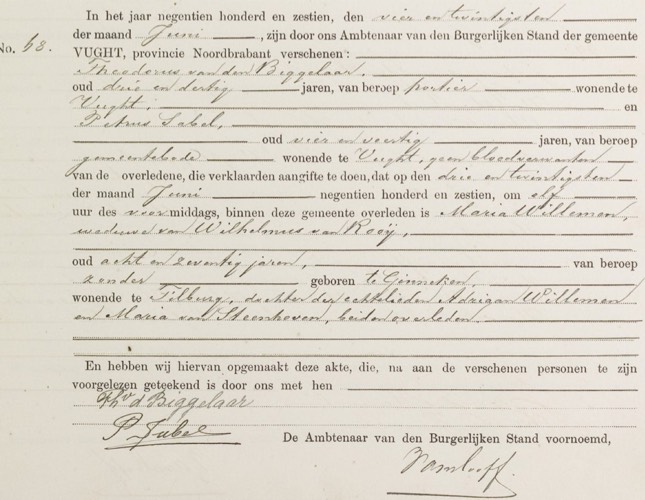 In het jaar negentien honderd en zestien, den vier en twintigsten
der maand Juni, zijn door ons Ambtenaar van den Burgerlijken Stand der gemeente
No. 63. VUGHT, provincie Noordbrabant verschenen:
Theodorus van den Biggelaar,
oud drie en dertig jaren, van beroep portier wonende te
Vught, en
Petrus Sabel,
oud vier en veertig jaren, van beroep
gemeentebode wonende te Vught, geen bloedverwanten
van de overledene, die verklaarden aangifte te doen, dat op den drie en twintigsten
der maand Juni negentien honderd en zestien, om elf
uur des voormiddags, binnen deze gemeente overleden is Maria Willemen,
weduwe van Wilhelmus van Rooij,
oud acht en zeventig jaren, van beroep
zonder geboren te Ginneken,
wonende te Tilburg, dochter der echtelieden Adrijaan Willemen
en Maria van Steenhoven, beiden overleden.
En hebben wij hiervan opgemaakt deze akte, die, na aan de verschenen personen te zijn
voorgelezen geteekend is door ons met hen
Th v d Biggelaar
P. Sabel
De Ambtenaar van den Burgerlijken Stand voornoemd,